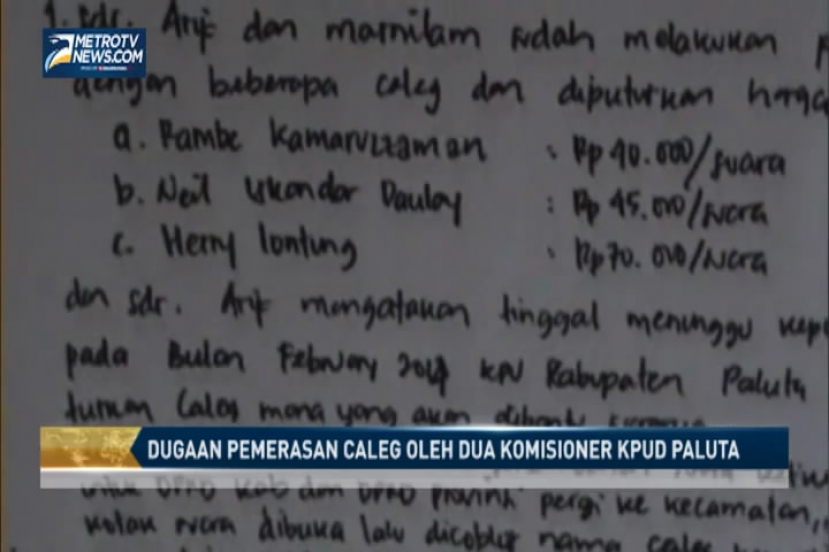 METROTV
NEWS.COM
1. Sdr. Arif dan marnilam sudah melakukan p
dengan beberapa caleg dan diputuskan harga
a. Rambe Kamarulzaman : Rp 40.000/suara
b. Neil Iskandar Daulay : Rp 45.000/suara
c. Herry lontung : Rp 70.000/suara
dan sdr. Arif mengatakan tinggal menunggu kep
pada Bulan February 2014 KPU Kabupaten Paluta
caleg mana yang akan dibantu
DUGAAN PEMERASAN CALEG OLEH DUA KOMISIONER KPUD PALUTA
untuk DPRD Kab dan DPRD Provinsi pergi ke kecamatan,
kotak suara dibuka lalu dicoblos nama caleg